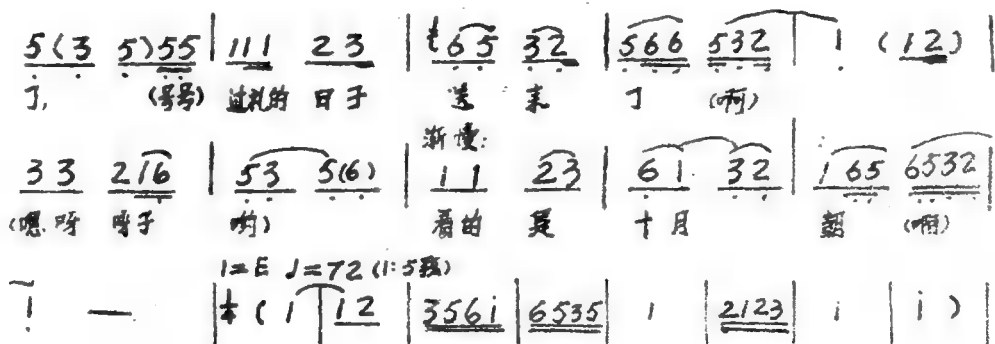 5(3 5)55 | 111 23 | 65 32 | 566 532 | 1 (12) |
了, (号号) 过礼的 日子 送 来 了 (啊)
渐慢:
33 216 | 53 5(6) | 11 23 | 61 32 | 165 6532 |
(嗯呀 呀子 哟) 看的 是 十月 朝 (啊)
1=E ♩=72 (1·5弦)
1 — | (1 | 12 | 3561 | 6535 | 1 | 2123 | i | i )